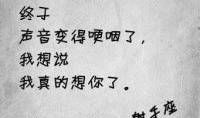 终于
声音变得哽咽了，
我想说
我真的想你了。